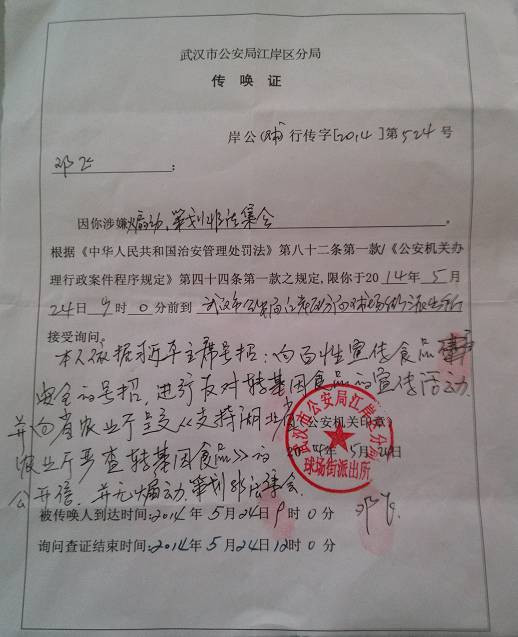 武汉市公安局江岸区分局
传唤证
岸公(球)行传字[2014]第524号
邓飞:
因你涉嫌煽动、策划非法集会。
根据《中华人民共和国治安管理处罚法》第八十二条第一款/《公安机关办
理行政案件程序规定》第四十四条第一款之规定,限你于2014年5月
24日9时0分前到武汉市公安局江岸区分局球场街派出所
接受询问。
本人依据习主席号招:向百性宣传食品
安全的号招,进行反对转基因食品的宣传活动.
并向省农业厅呈交《支持湖北省
农业厅严查转基因食品》的
公开信.并无煽动、策划非法集会.
(公安机关印章)
2014年5月24日
武汉市公安局江岸区分局
球场街派出所
被传唤人到达时间:2014年5月24日9时0分 邓飞
询问查证结束时间:2014年5月24日12时0分